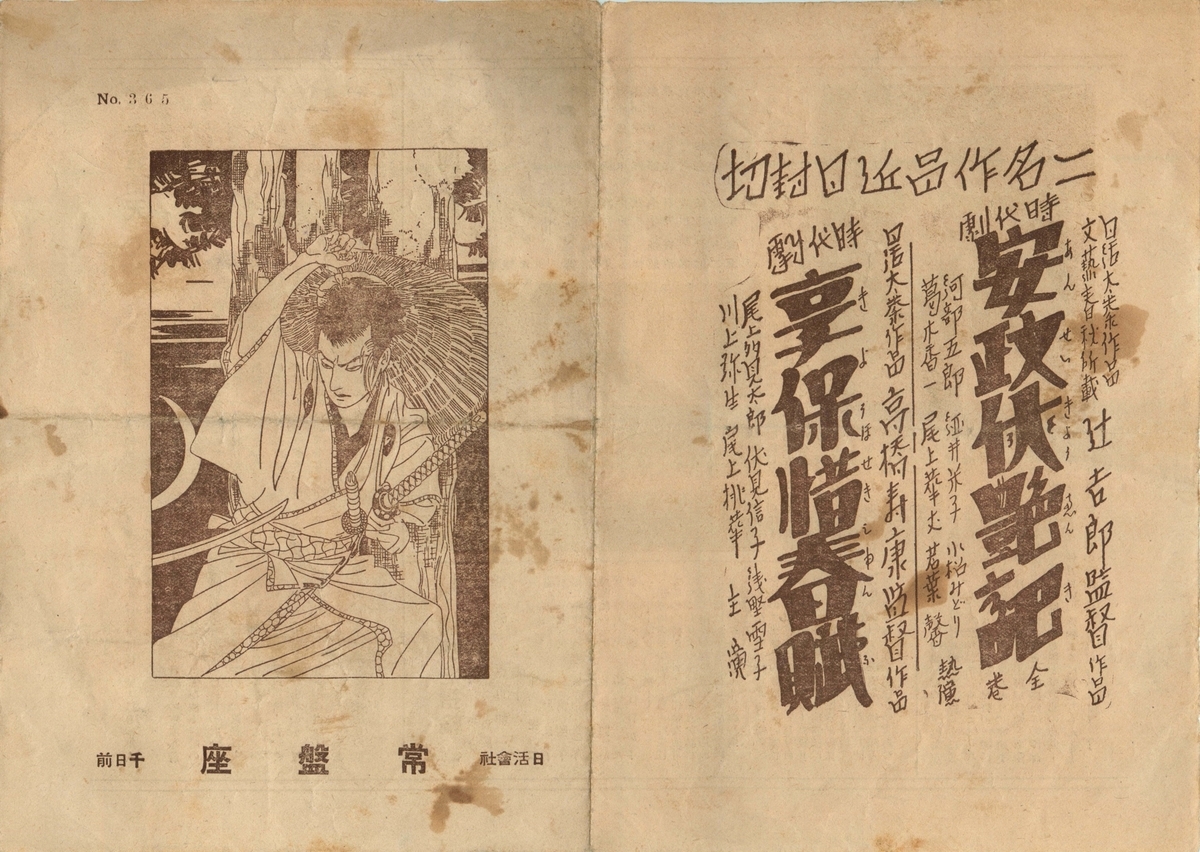 二名作品近日封切
日活大秦作品
文藝春秋所載
辻吉郎監督作品
時代劇
安政侠艶記
あんせいきようゑんき
全巻
河部五郎 酒井米子 小松みどり
葛木香一 尾上華丈 若葉馨 熱演
日活大秦作品 高橋寿康監督作品
時代劇
享保惜春賦
きようほせきしゆんふ
尾上多見太郎 伏見信子 浅野雪子
川上弥生 尾上桃華 主演
No. 365
日活會社 常盤座 千日前